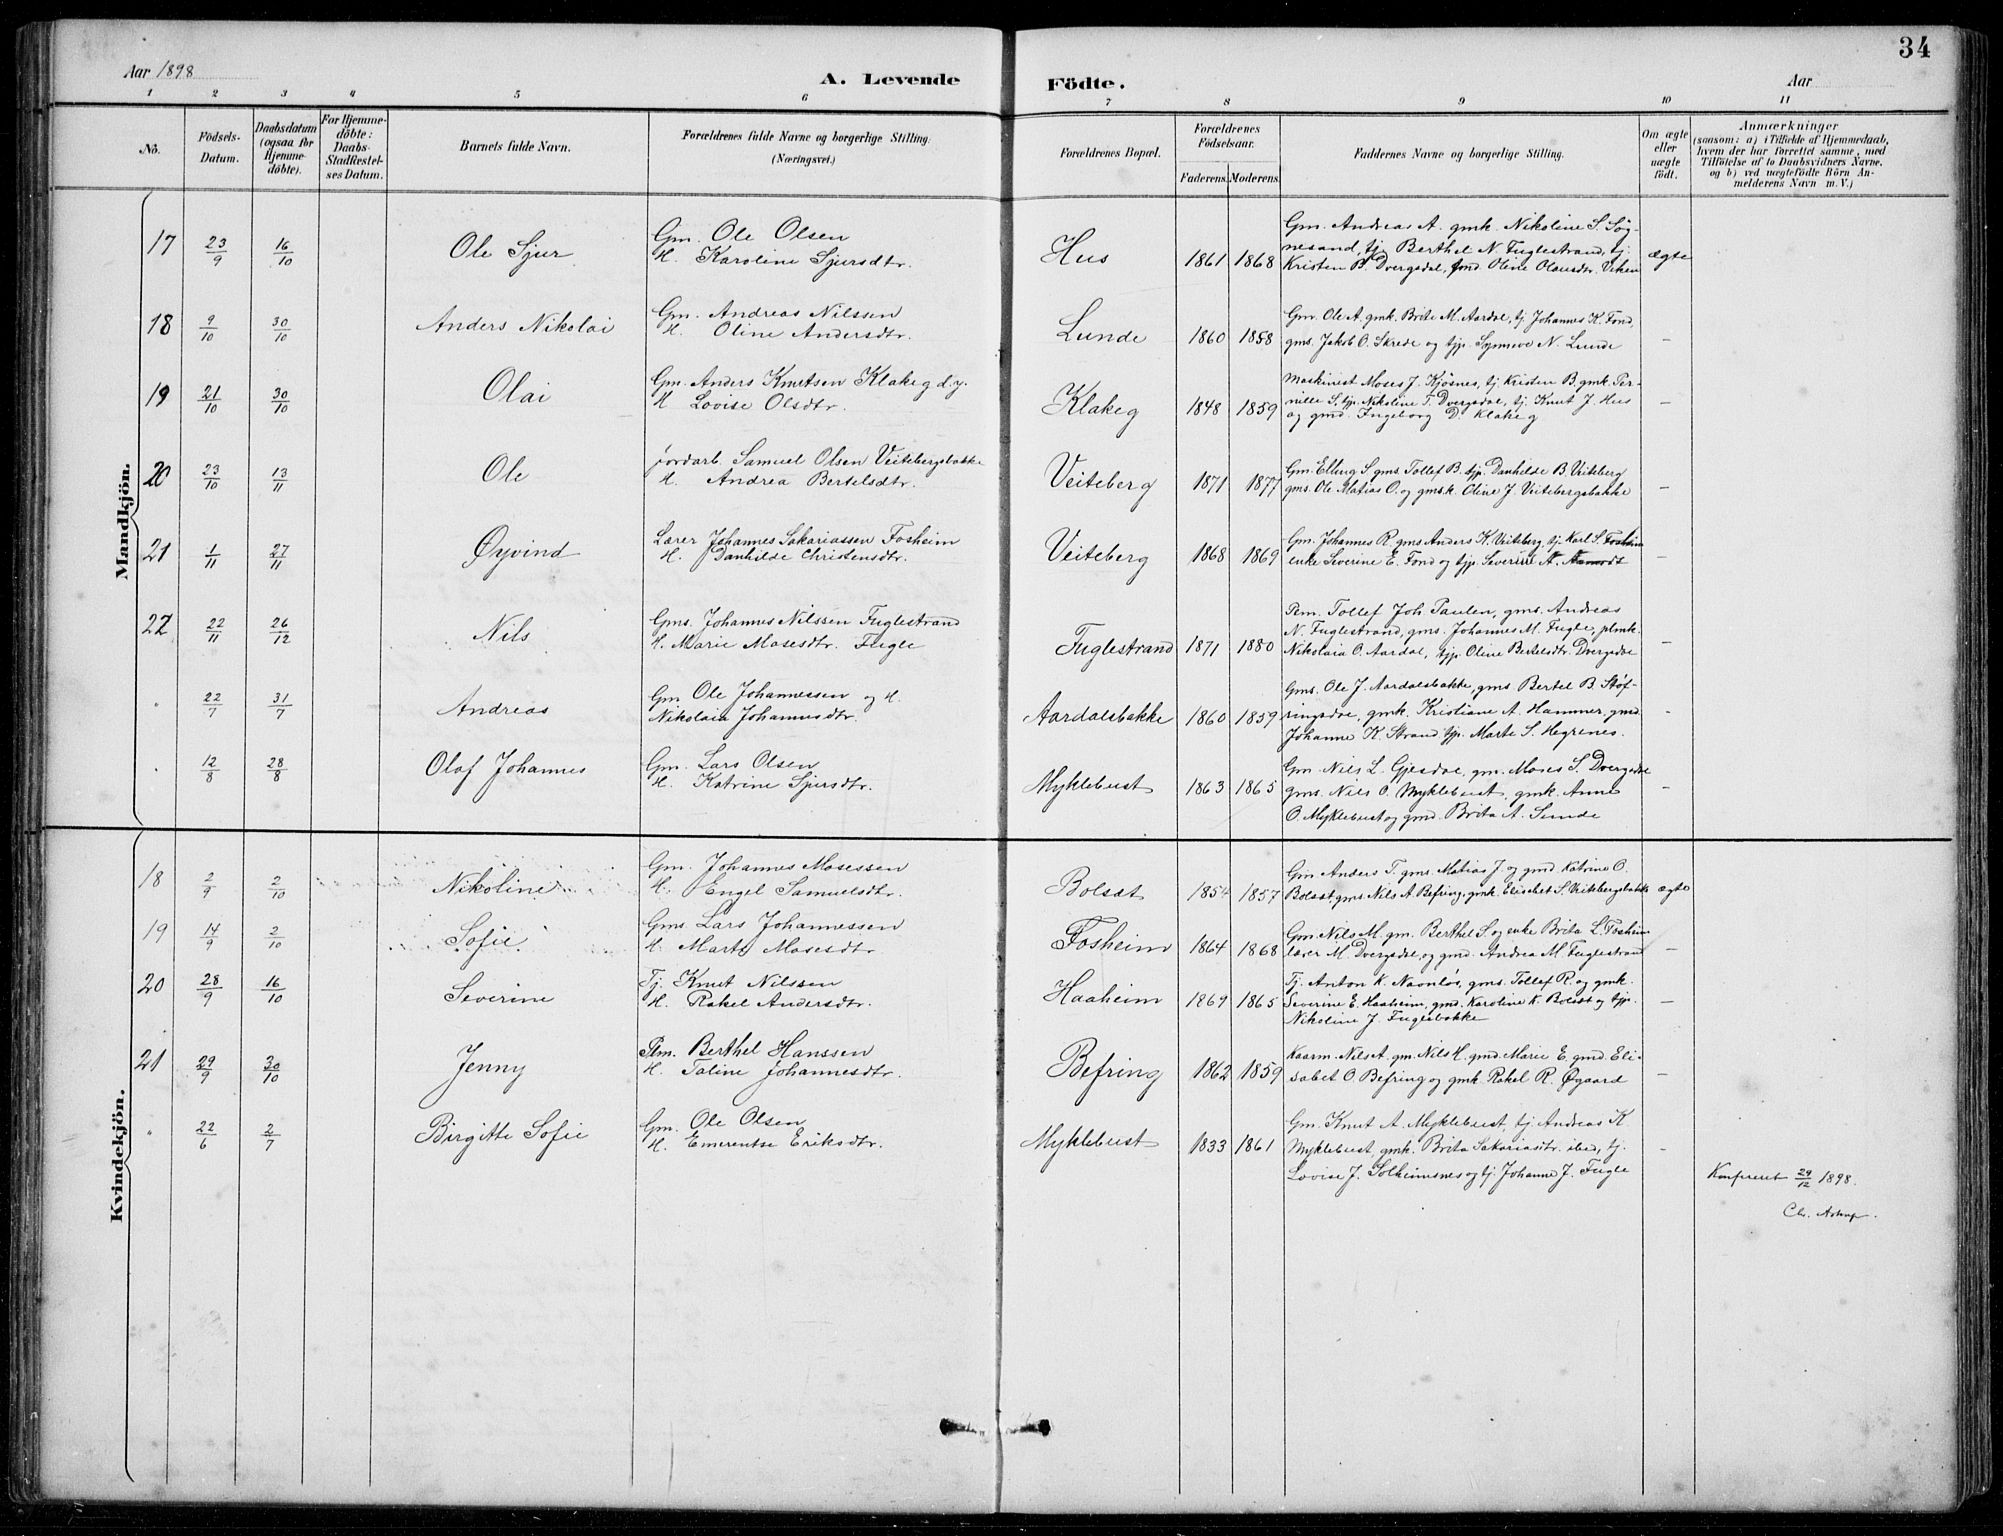 34
Aar 1898
A. Levende
Födte.
Aar
1 2 3 4 5 6 7 8 9 10 11
No.
Födsels-Datum.
Daabsdatum (ogsaa for Hjemme-döbte).
For Hjemme-döbte: Daabs-Stadfæstel-ses Datum.
Barnets fulde Navn.
Forældrenes fulde Navne og borgerlige Stilling.
(Næringsvei.)
Forældrenes Bopæl.
Forældrenes Födselsaar.
Faderens. Moderens.
Faddernes Navne og borgerlige Stilling.
Om ægte eller uægte födt.
Anmærkninger
(saasom: a) i Tilfælde af Hjemmedaab,
hvem der har forrettet samme, med
Tilföielse af to Daabsvidners Navne,
og b) ved uægtefödte Börn An-
melderens Navn m. V.)
Mandkjön.
17 23/9 16/10 Ole Sjur
Gm. Ole Olsen
H. Karoline Sjursdtr.
Hus 1861 1868
Gm. Andreas A. gmk. Nikoline S. Søg-
nesand, tj. Berthel N. Fuglestrand, tj.
Kristen B. Dvergsdal, gmd. Oline Olausdtr. Viken
ægte
18 9/10 30/10 Anders Nikolai
Gm. Andreas Nilssen
H. Oline Andersdtr.
Lunde 1860 1858
Gm. Ole A. gmk. Brite M. Aardal, tj. Johannes K. Fond,
gms. Jakob O. Skrede og tjp. Synneve N. Lunde
–
19 21/10 30/10 Olai
Gm. Anders Knutsen Klakeg d.y.
H. Lovise Olsdtr.
Klakeg 1848 1859
Maskinist Moses J. Kjøsnes, tj. Kristen B. gmk. Per-
nille S. tjp. Nikoline T. Dvergsdal, tj. Knut J. Hus
og gmd. Ingeborg D. Klakeg
–
20 23/10 13/11 Ole
Jordarb. Samuel Olsen Veitebergsbakke
H. Andrea Bertelsdtr.
Veiteberg 1871 1877
Gm. Elling S. gms. Tollef B. tjp. Danhilde B. Veiteberg
gms. Ole Matias O. og gmsk. Oline J. Veitebergsbakke
–
21 1/11 27/11 Øyvind
Lærer Johannes Sakariassen Fosheim
H. Danhilde Christensdtr.
Veiteberg 1868 1869
Gm. Johannes R. gms. Anders K. Veiteberg, tj. Karl S. Fosheim
enke Severine E. Fond og tjp. Severine N.
–
22 22/11 26/12 Nils
Gms. Johannes Nilssen Fuglestrand
H. Marie Mosesdtr. Fugle
Fuglestrand 1871 1880
Pem. Tollef Joh. Paulen, gms. Andreas
N. Fuglestrand, gms. Johannes M. Fugle, plmk.
Nikolaia O. Aardal, tjp. Oline Bertelsdtr. Dvergsdal
–
" 22/7 31/7 Andreas
Gm. Ole Johannessen og H.
Nikolaia Johannesdtr.
Aardalsbakke 1860 1859
Gms. Ole J. Aardalsbakke, gms. Bertel B. Støf-
ringsdal, gmk. Kristiane A. Hammer, gmd.
Johanne K. Strand tjp. Marte S. Hegrenes.
–
" 12/8 28/8 Olaf Johannes
Gm. Lars Olsen
H. Katrine Sjursdtr.
Myklebust 1863 1865
Gm. Nils L. Gjesdal, gm. Moses S. Dvergsdal
gms. Nils O. Myklebust, gmk. Anne
O. Myklebust og gmd. Brita A. Sunde
–
Kvindekjön.
18 2/9 2/10 Nikoline
Gm. Johannes Mosessen
H. Engel Samuelsdtr.
Bolsæt 1854 1857
Gm Anders T. gms. Matias J. og gmd Katrine O.
Bolsæt, gms Nils A. Befring, gmk. Elisebet S. Veitebergsbakke
ægte
19 14/9 2/10 Sofie
Gms Lars Johannessen
H. Marta Mosesdtr.
Fosheim 1864 1868
Gm Nils M. gm. Berthel S. og enke Brita L. Fosheim
lærer M. Dvergsdal, og gmd. Andrea M. Fuglestrand
–
20 28/9 16/10 Severine
Tj. Knut Nilssen
H. Rakel Andersdtr.
Haaheim 1869 1865
Tj. Anton K. Navnløs, gms. Tollef R. og gmk.
Severine E. Haaheim, gmd. Karoline K. Bolsæt og tjp.
Nikoline J. Fuglebakke
–
21 29/9 30/10 Jenny
Plm. Berthel Hanssen
H. Taline Johannesdtr.
Befring 1862 1859
Kaarm. Nils A. gm. Nils H. gmd. Marie E. gmd. Eli-
sabet O. Befring og gmk. Rakel R. Øgaard
–
" 22/6 2/7 Birgitte Sofie
Gm. Ole Olsen
H. Emerentse Eriksdtr.
Myklebust 1833 1861
Gm. Knut A. Myklebust, tj. Andreas K.
Myklebust, gmk. Brita Sakariasdtr. ibid, tj.
Lovise J. Solheimsnes og tj. Johanne J. Fugle
–
Konfereret 29/12 1898.
Chr. Astrup.